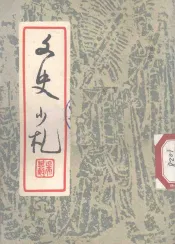 文史小札